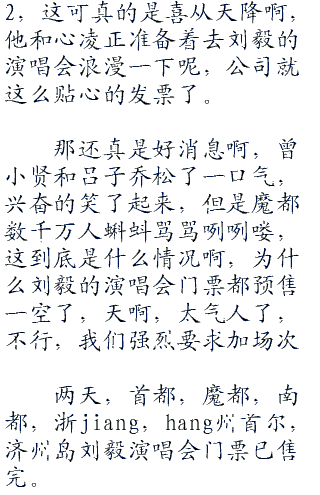 2，这可真的是喜从天降啊，
他和心凌正准备着去刘毅的
演唱会浪漫一下呢，公司就
这么贴心的发票了。
那还真是好消息啊，曾
小贤和吕子乔松了一口气，
兴奋的笑了起来，但是魔都
数千万人蝌蚪骂骂咧咧喽，
这到底是什么情况啊，为什
么刘毅的演唱会门票都预售
一空了，天啊，太气人了，
不行，我们强烈要求加场次
两天，首都，魔都，南
都，浙jiang，hang州首尔，
济州岛刘毅演唱会门票已售
完。